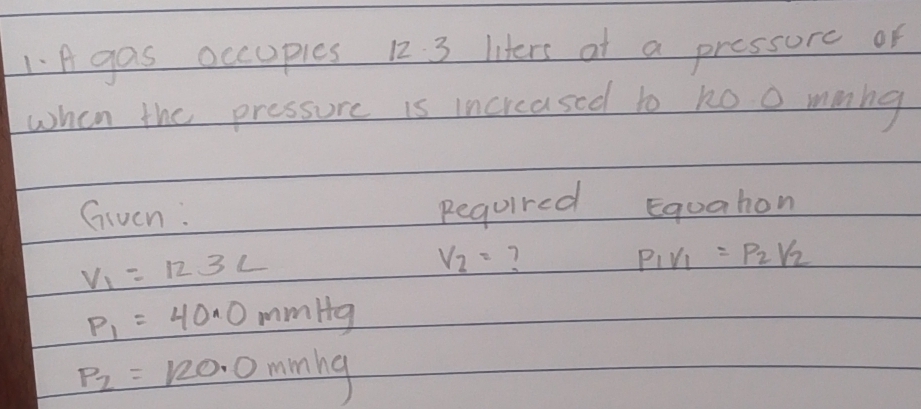 1. A gas occupies 12.3 liters at a pressure of
when the pressure is increased to 120.0 mmhg
Given: Required Equation
V₁ = 12 3 L V₂ = ? P₁V₁ = P₂V₂
P₁ = 40.0 mmHg
P₂ = 120.0 mmhg